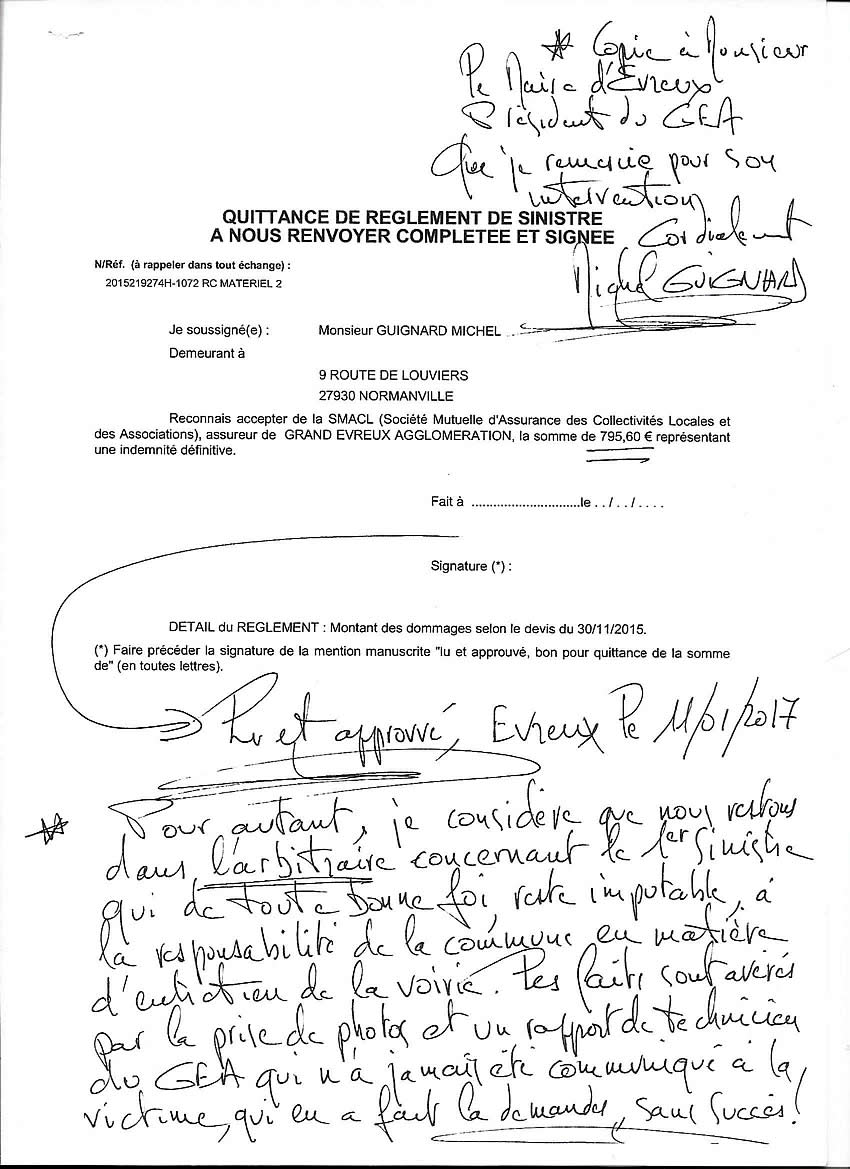 * Copie à Monsieur
le Maire d'Evreux
Président du GEA
que je remercie pour son
intervention
Cordialement
Michel GUIGNARD
QUITTANCE DE REGLEMENT DE SINISTRE
A NOUS RENVOYER COMPLETEE ET SIGNEE
N/Réf. (à rappeler dans tout échange) :
2015219274H-1072 RC MATERIEL 2
Je soussigné(e) : Monsieur GUIGNARD MICHEL
Demeurant à
9 ROUTE DE LOUVIERS
27930 NORMANVILLE
Reconnais accepter de la SMACL (Société Mutuelle d'Assurance des Collectivités Locales et
des Associations), assureur de GRAND EVREUX AGGLOMERATION, la somme de 795,60 € représentant
une indemnité définitive.
Fait à ..............................le . . / . . / . . . .
Signature (*) :
DETAIL du REGLEMENT : Montant des dommages selon le devis du 30/11/2015.
(*) Faire précéder la signature de la mention manuscrite "lu et approuvé, bon pour quittance de la somme
de" (en toutes lettres).
Lu et approuvé, Evreux le 11/01/2017
* Pour autant, je considère que nous restons
dans l'arbitraire concernant le 1er sinistre
qui de toute bonne foi, reste imputable, à
la responsabilité de la commune en matière
d'entretien de la voirie. Les faits sont avérés
par la prise de photos et un rapport de technicien
du GEA qui n'a jamais été communiqué à la
victime, qui en a fait la demande, sans succès !